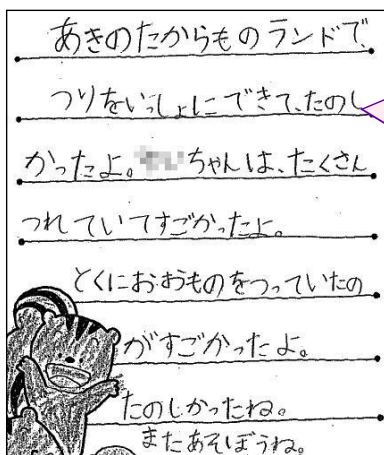 あきのたからものランドで、
つりをいっしょにできて、たのし
かったよ。ちゃんは、たくさん
つれていてすごかったよ。
とくにおおものをつっていたの
がすごかったよ。
たのしかったね。
またあそぼうね。